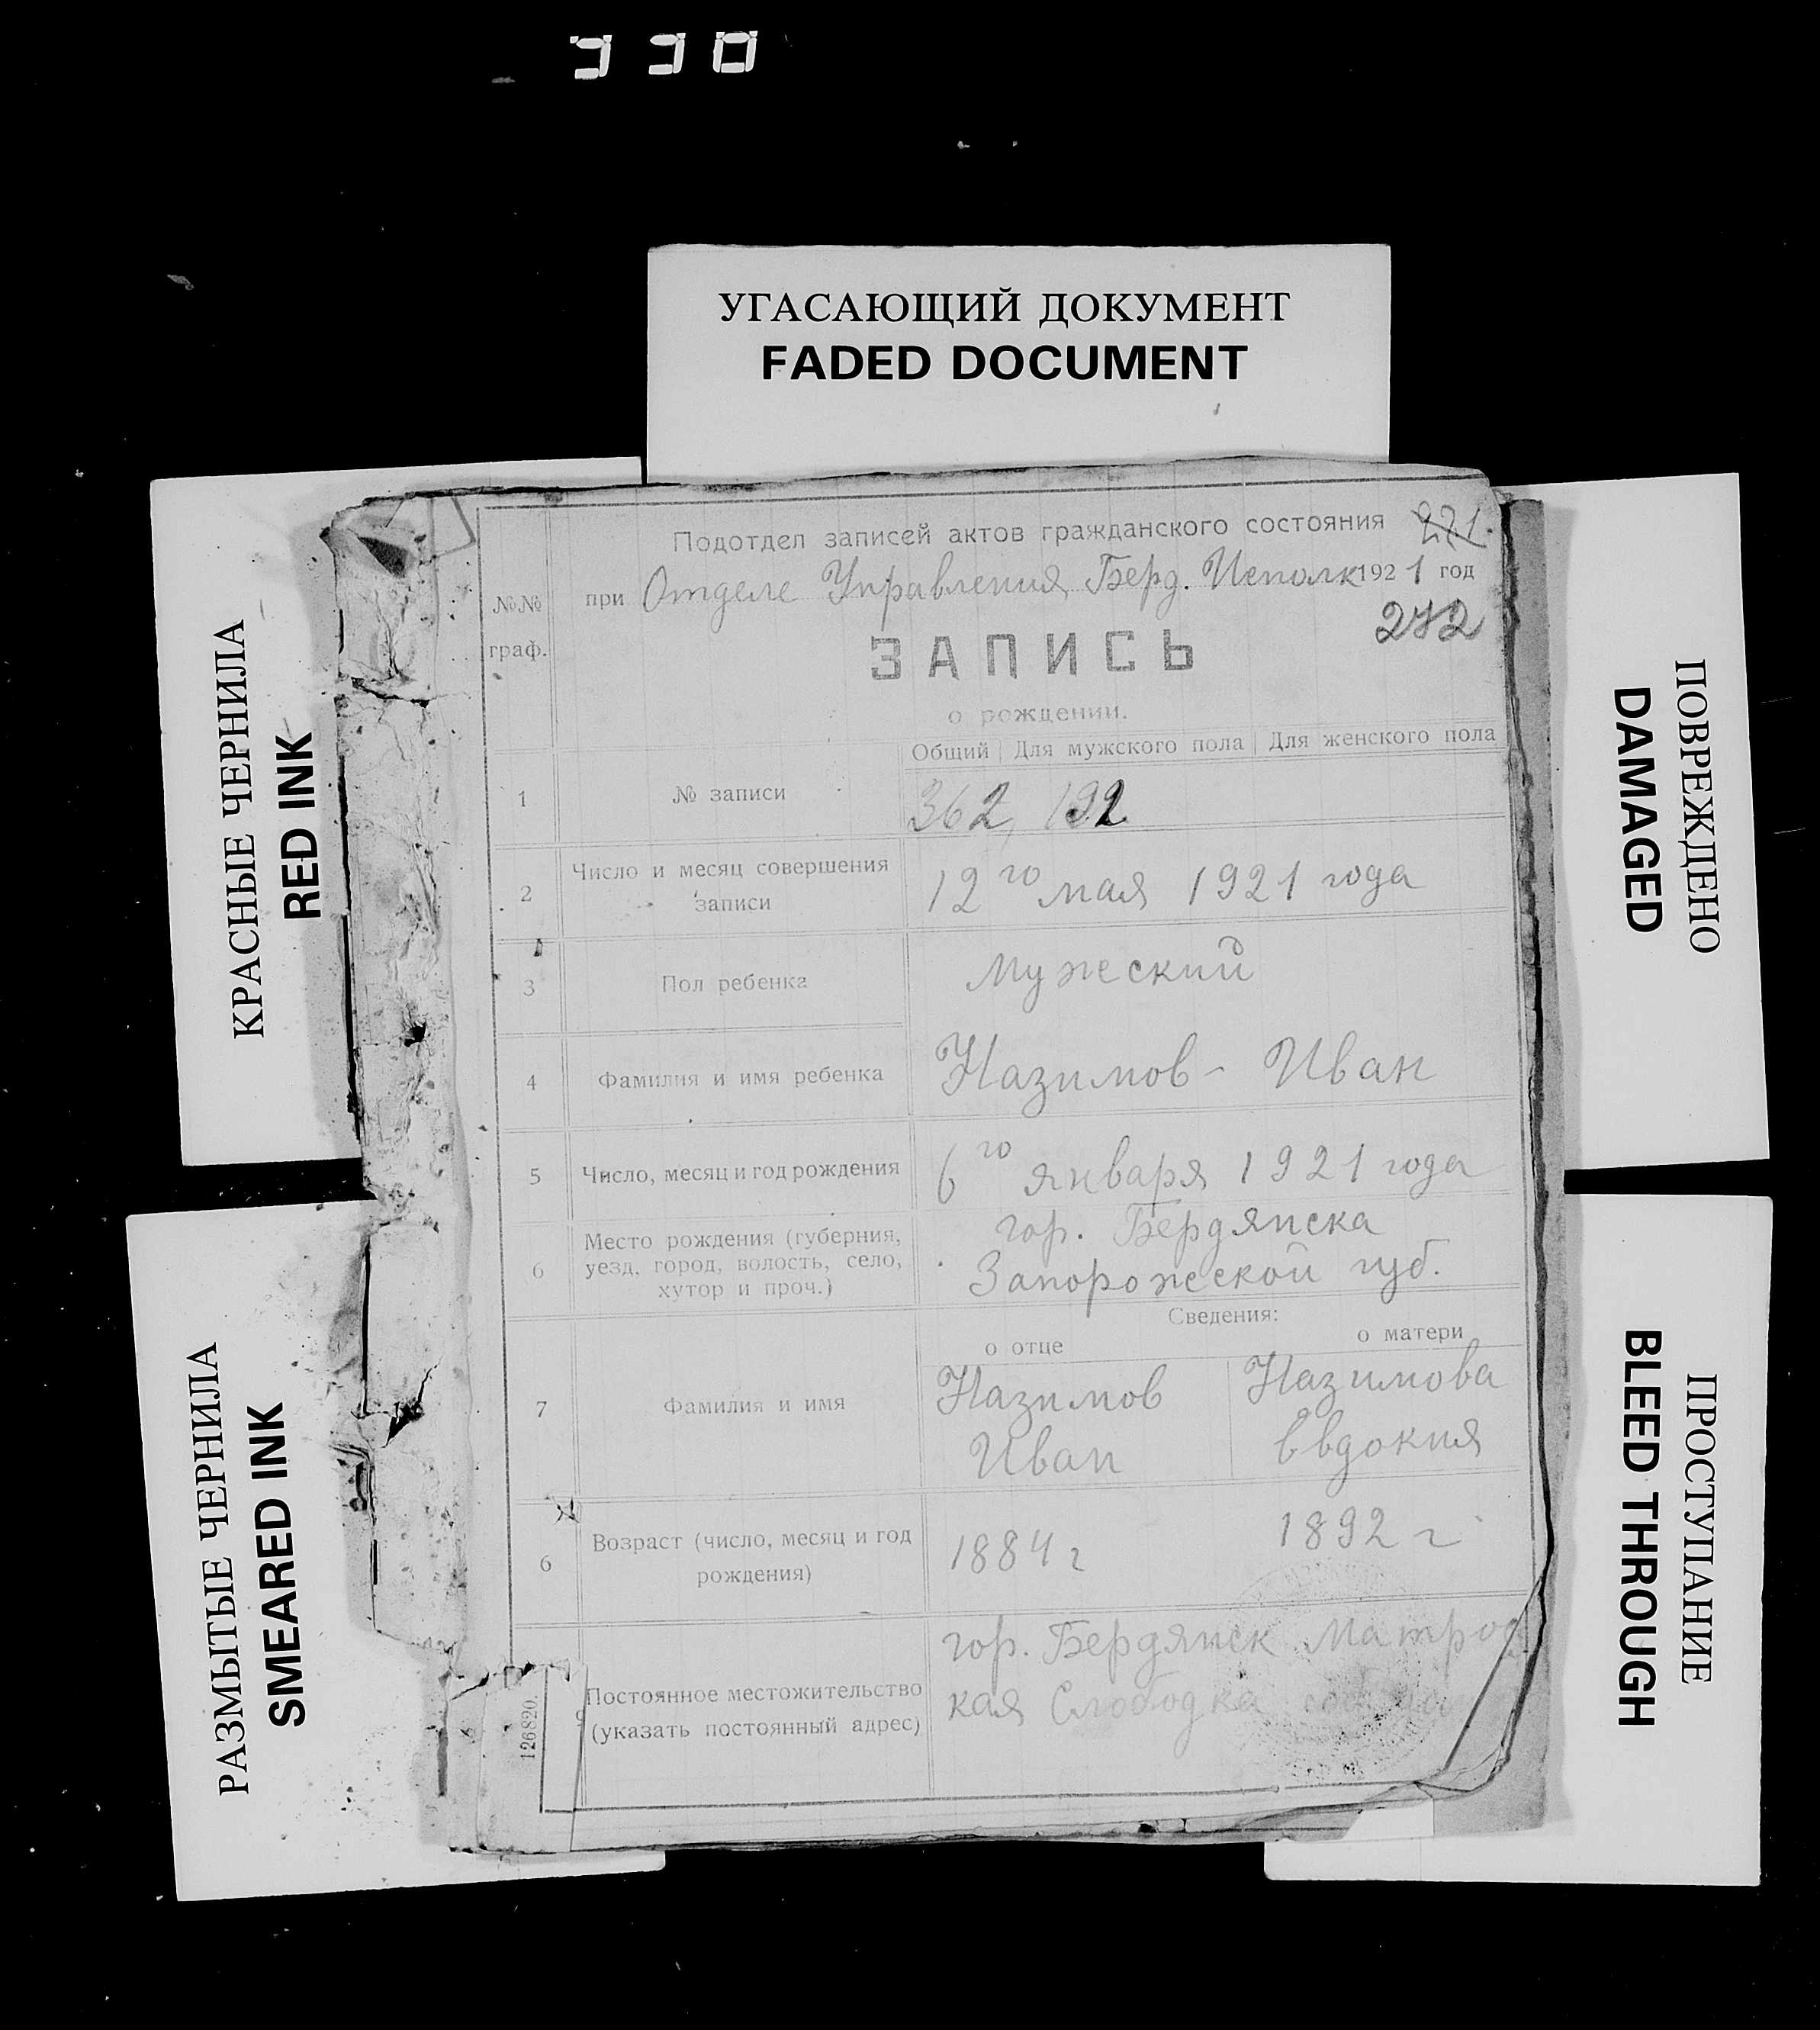 930
УГАСАЮЩИЙ ДОКУМЕНТ
FADED DOCUMENT
КРАСНЫЕ ЧЕРНИЛА
RED INK
РАЗМЫТЫЕ ЧЕРНИЛА
SMEARED INK
ПОВРЕЖДЕНО
DAMAGED
ПРОСТУПАНИЕ
BLEED THROUGH
Подотдел записей актов гражданского состояния 221.
при Отделе Управления Берд. Исполк 1921 год
272
№№
граф.
ЗАПИСЬ
о рождении.
Общий Для мужского пола Для женского пола
1 № записи 362, 192
2 Число и месяц совершения
записи
12го мая 1921 года
3 Пол ребенка Мужеский
4 Фамилия и имя ребенка Назимов - Иван
5 Число, месяц и год рождения 6го января 1921 года
6 Место рождения (губерния,
уезд, город, волость, село,
хутор и проч.)
гор. Бердянска
Запорожеской губ.
Сведения:
о отце о матери
7 Фамилия и имя
Назимов Назимова
Иван Евдокия
6 Возраст (число, месяц и год
рождения)
1884 г 1892 г
9 Постоянное местожительство
(указать постоянный адрес)
гор. Бердянск Матрос
кая Слободка
126820.